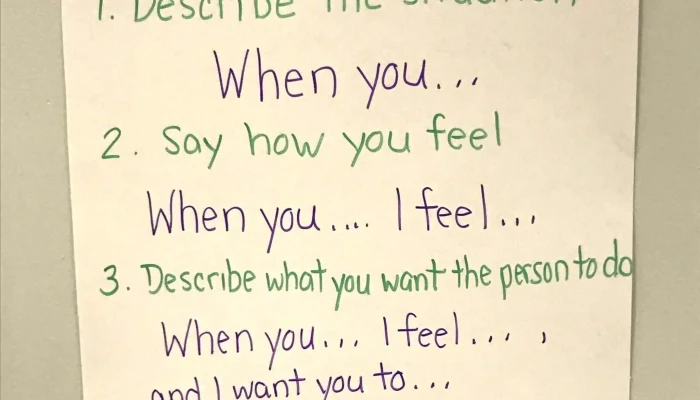 1. Describe the situation,
When you...
2. Say how you feel
When you.... I feel...
3. Describe what you want the person to do
When you... I feel... ,
and I want you to...